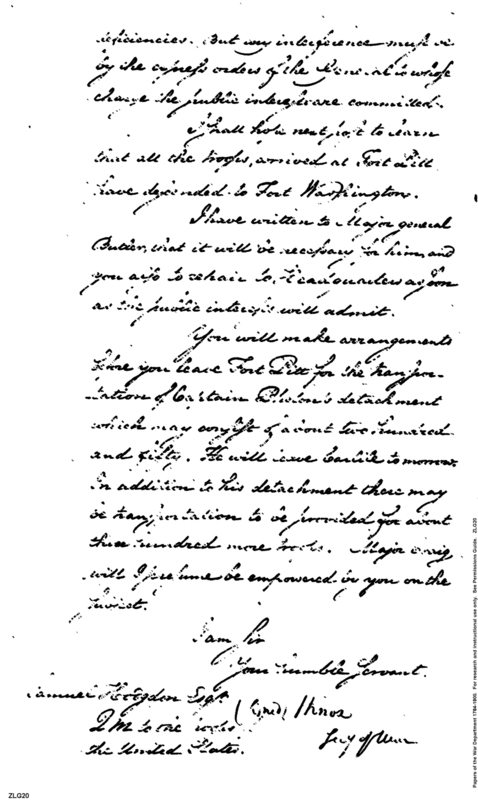 deficiencies. But any interference must be
by the express orders of the General to whose
charge the public interests are committed.
I shall hope next post to learn
that all the troops, arrived at Fort Pitt
have descended to Fort Washington.
I have written to Major general
Butler, that it will be necessary for him, and
you also to repair to Head quarters as soon
as the public interests will admit.
You will make arrangements
before you leave Fort Pitt for the transpor-
-tation of Captain Phelon's detachment
which may consist of about two hundred
and fifty. He will leave Carlisle tomorrow.
In addition to his detachment there may
be transportation to be provided for about
three hundred more troops. Major Craig
will I presume be empowered by you on the
subject.
I am Sir
Your humble Servant.
Samuel Hodgdon Esqr
(signed) HKnox
QM to the troops
Secy of War
the United States.
ZLG20
Papers of the War Department 1784-1800. For research and instructional use only. See Permissions Guide. ZLG20